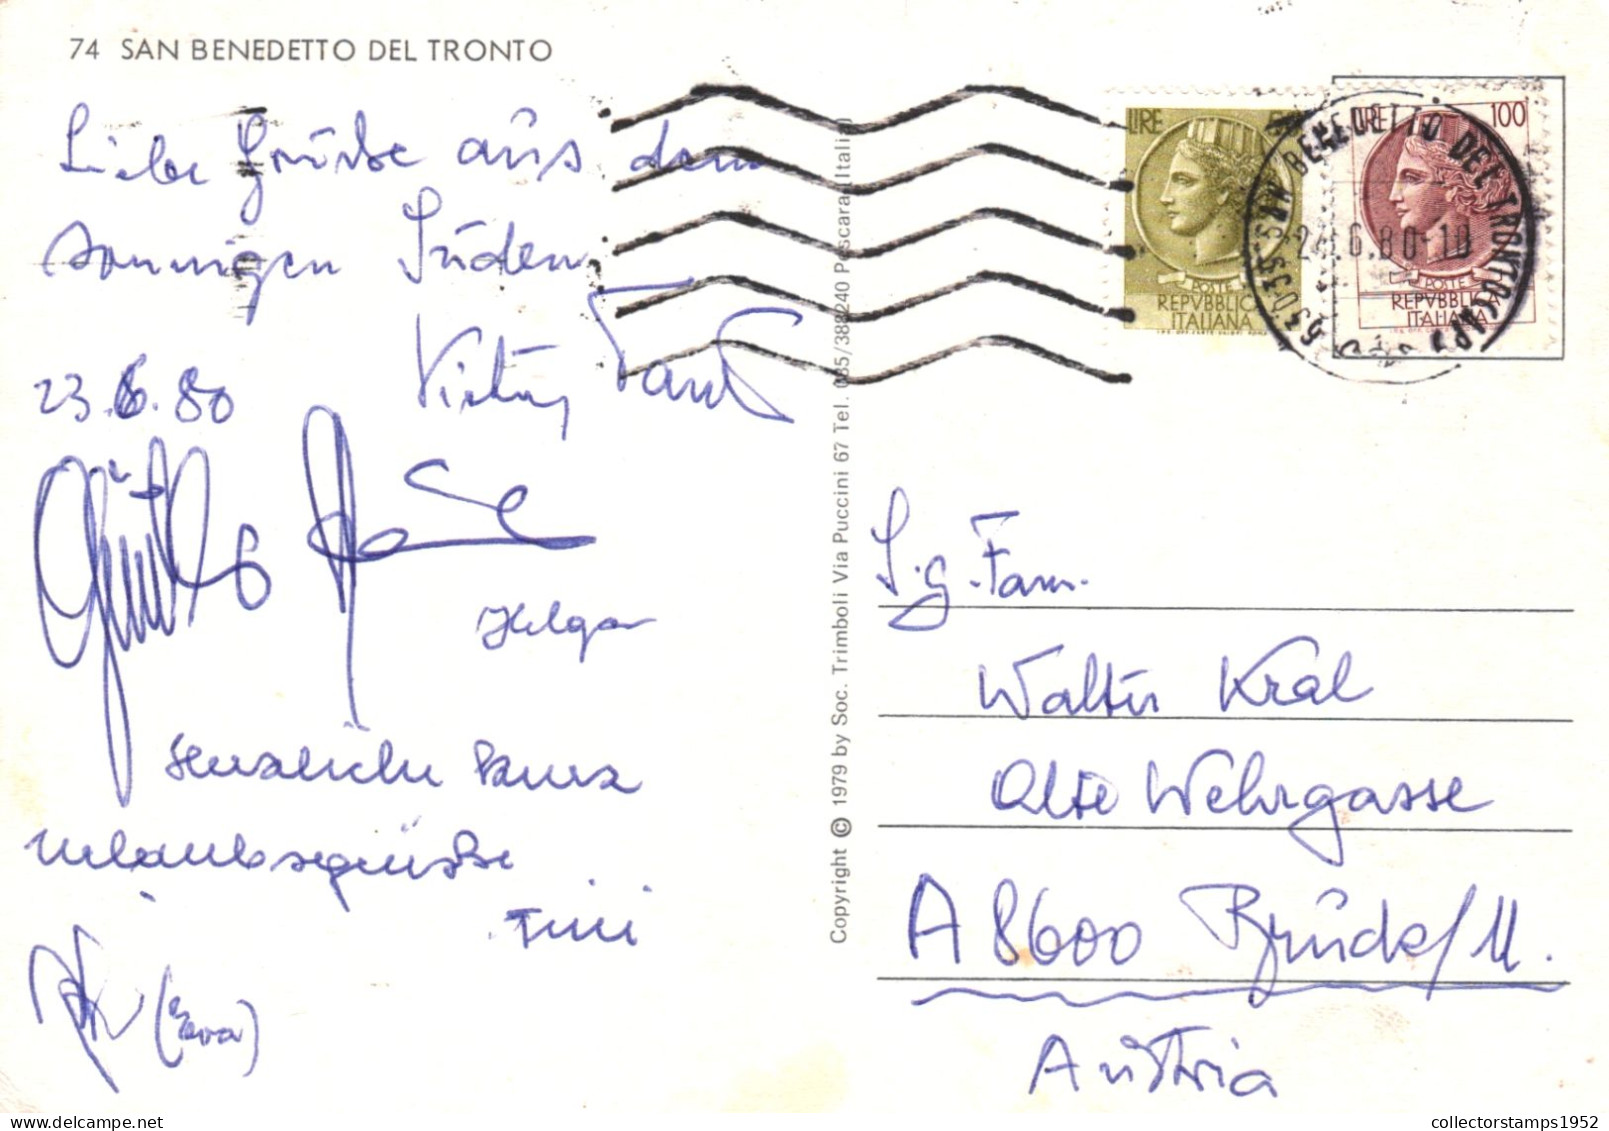 74 SAN BENEDETTO DEL TRONTO
Liebe Grüße aus dem
sonnigen Süden
23.6.80
Günther
Helga
Herzliche
Urlaubsgrüsse
Tini
(Eva)
Copyright © 1979 by Soc. Trimboli Via Puccini 67 Tel. 085/388240 Pescara (Italia)
LIRE
POSTE
REPVBBLICA
ITALIANA
LIRE 100
POSTE
REPVBBLICA
ITALIANA
63039 SAN BENEDETTO DEL TRONTO
Sg. Fam.
Walter Kral
Alte Wehrgasse
A 8600 Bruck/M.
Austria
collectorstamps1952